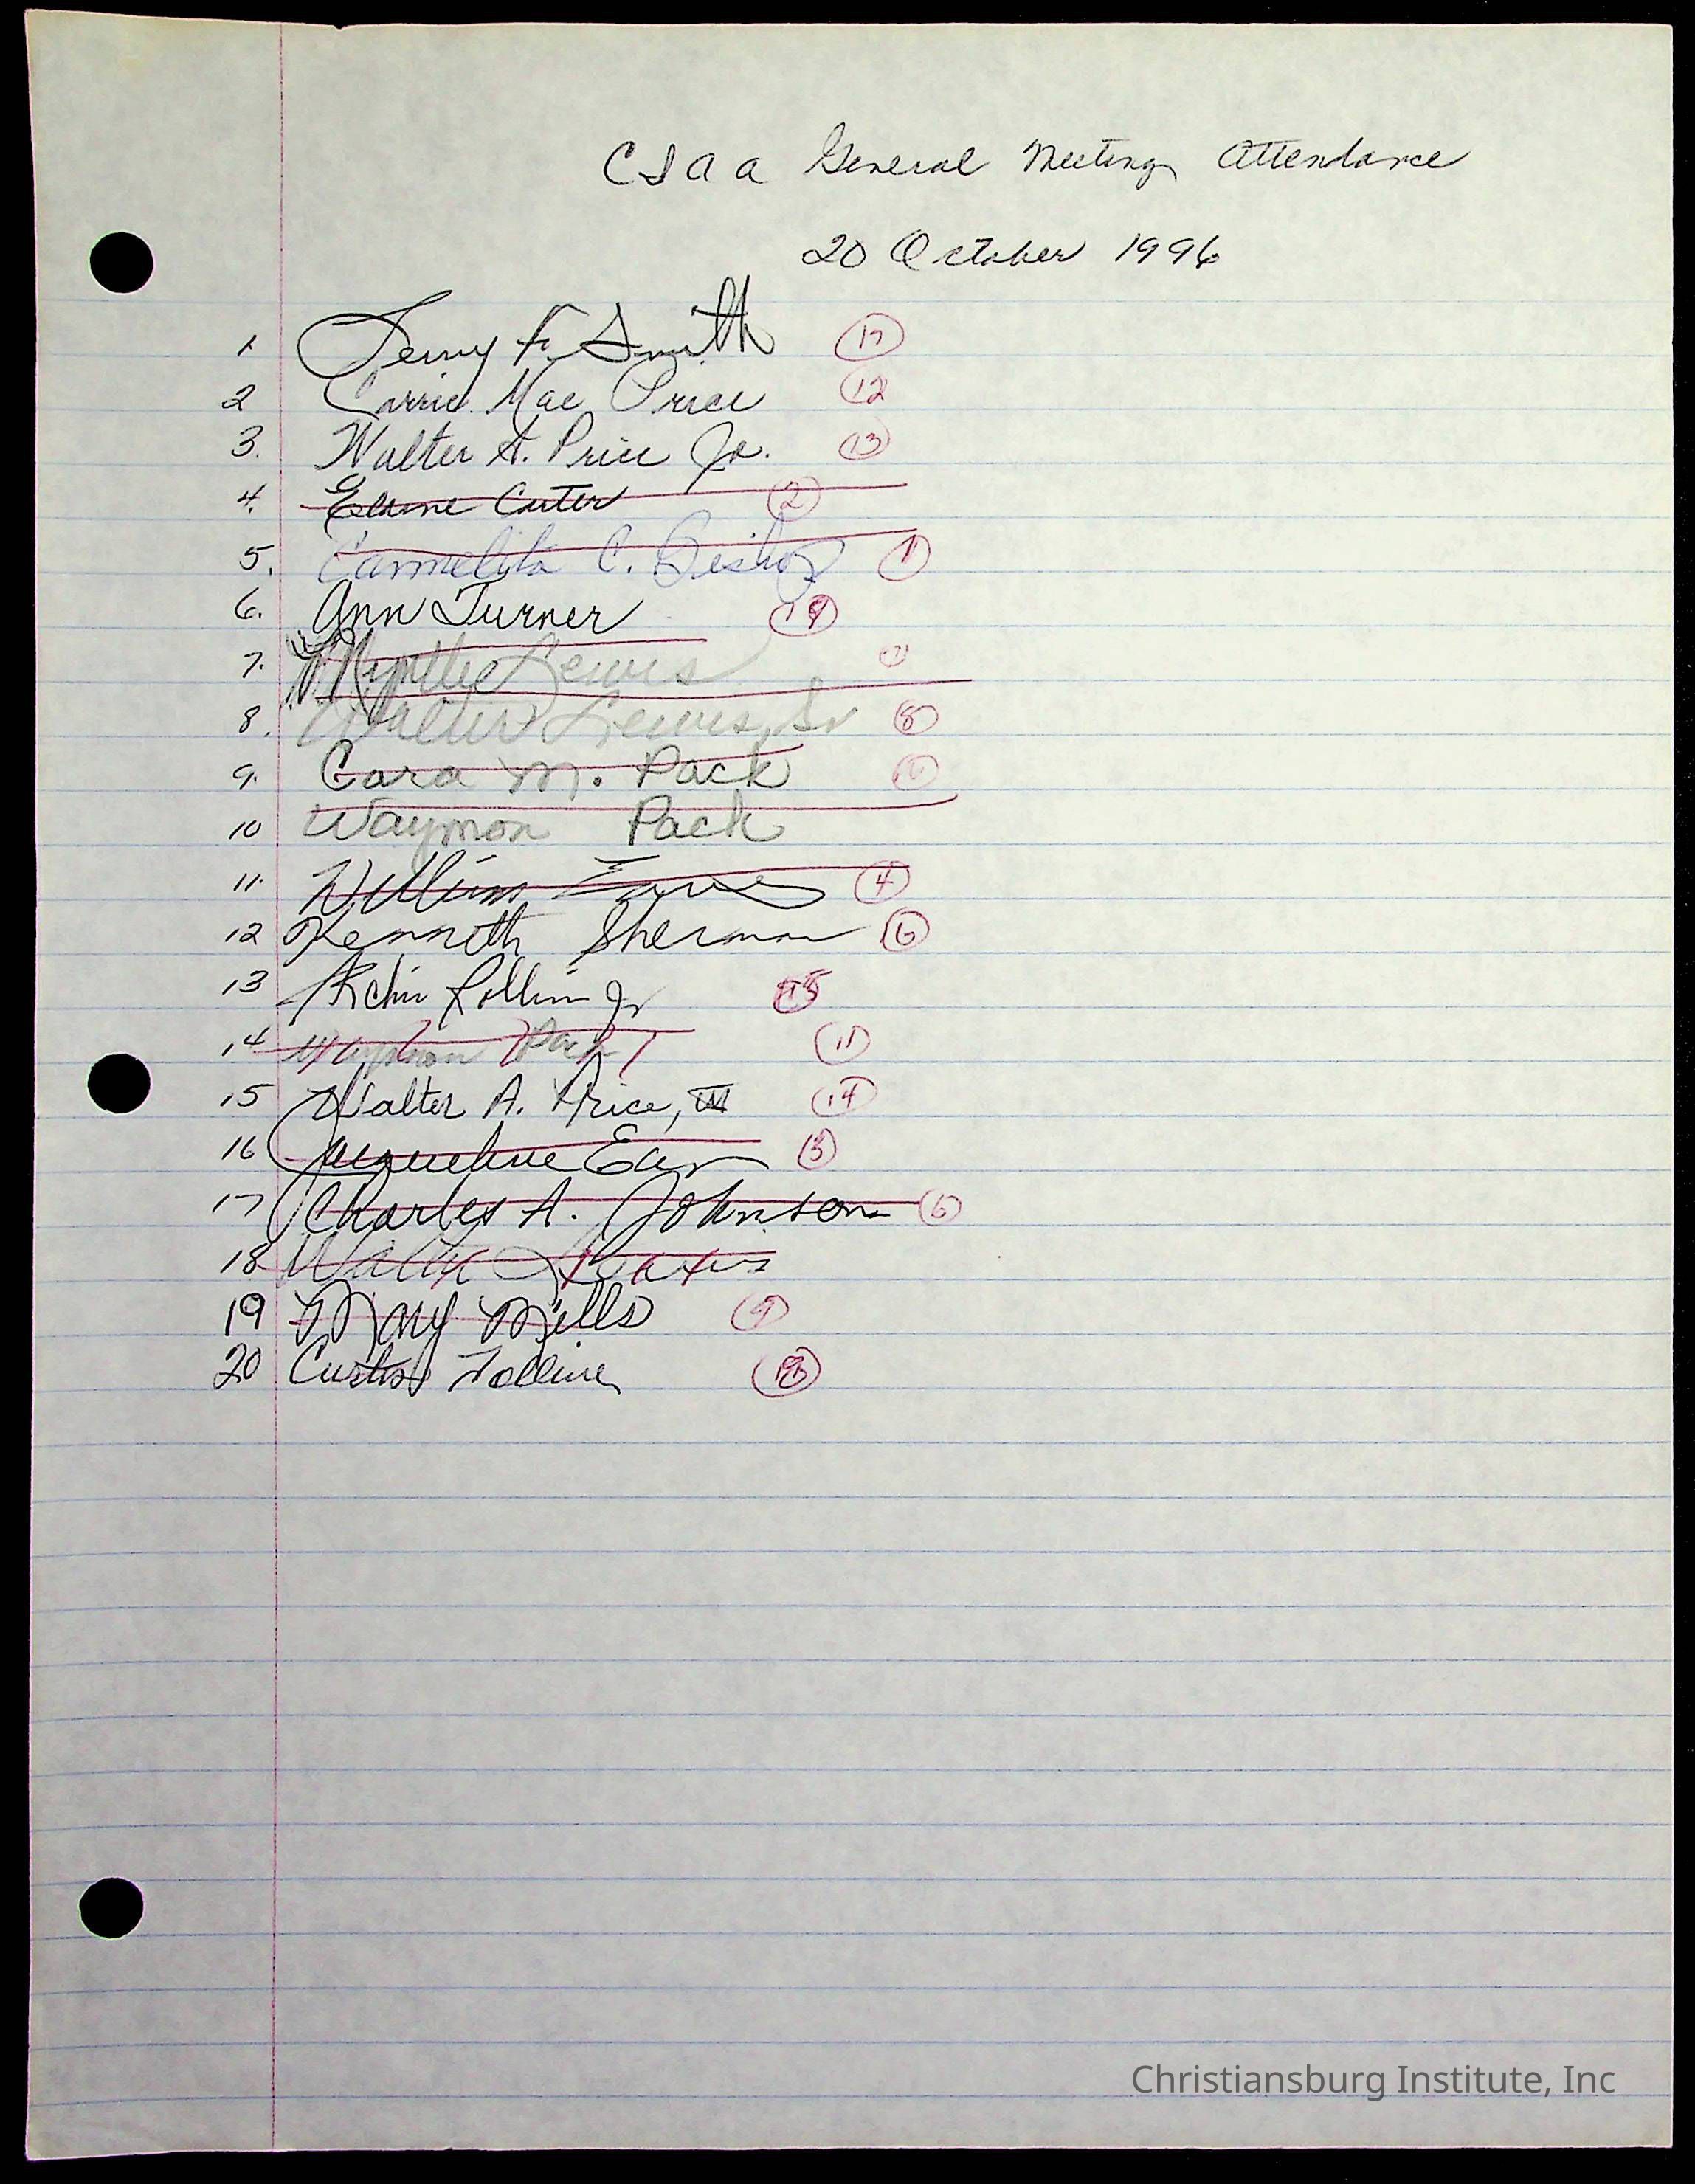 CIaa General Meeting Attendance
20 October 1996
1 F. Smith 17
2 Carrie Mae Price 12
3. Walter A. Price Jr. 13
4. Elaine Carter 2
5. Carmelita C. Bishop 1
6. Ann Turner 19
7. Myrtle Lewis 7
8. Walter Lewis, Sr 8
9. Cara M. Pack
10 Waymon Pack
11. William 4
12 Kenneth Sherman
13 Archie Rollin Jr 15
14 Waymon Pack 11
15 Walter A. Price, III 14
16 Jacqueline 3
17 Charles A. Johnson 6
18
19 Mary Mills 9
20 Curtis
Christiansburg Institute, Inc